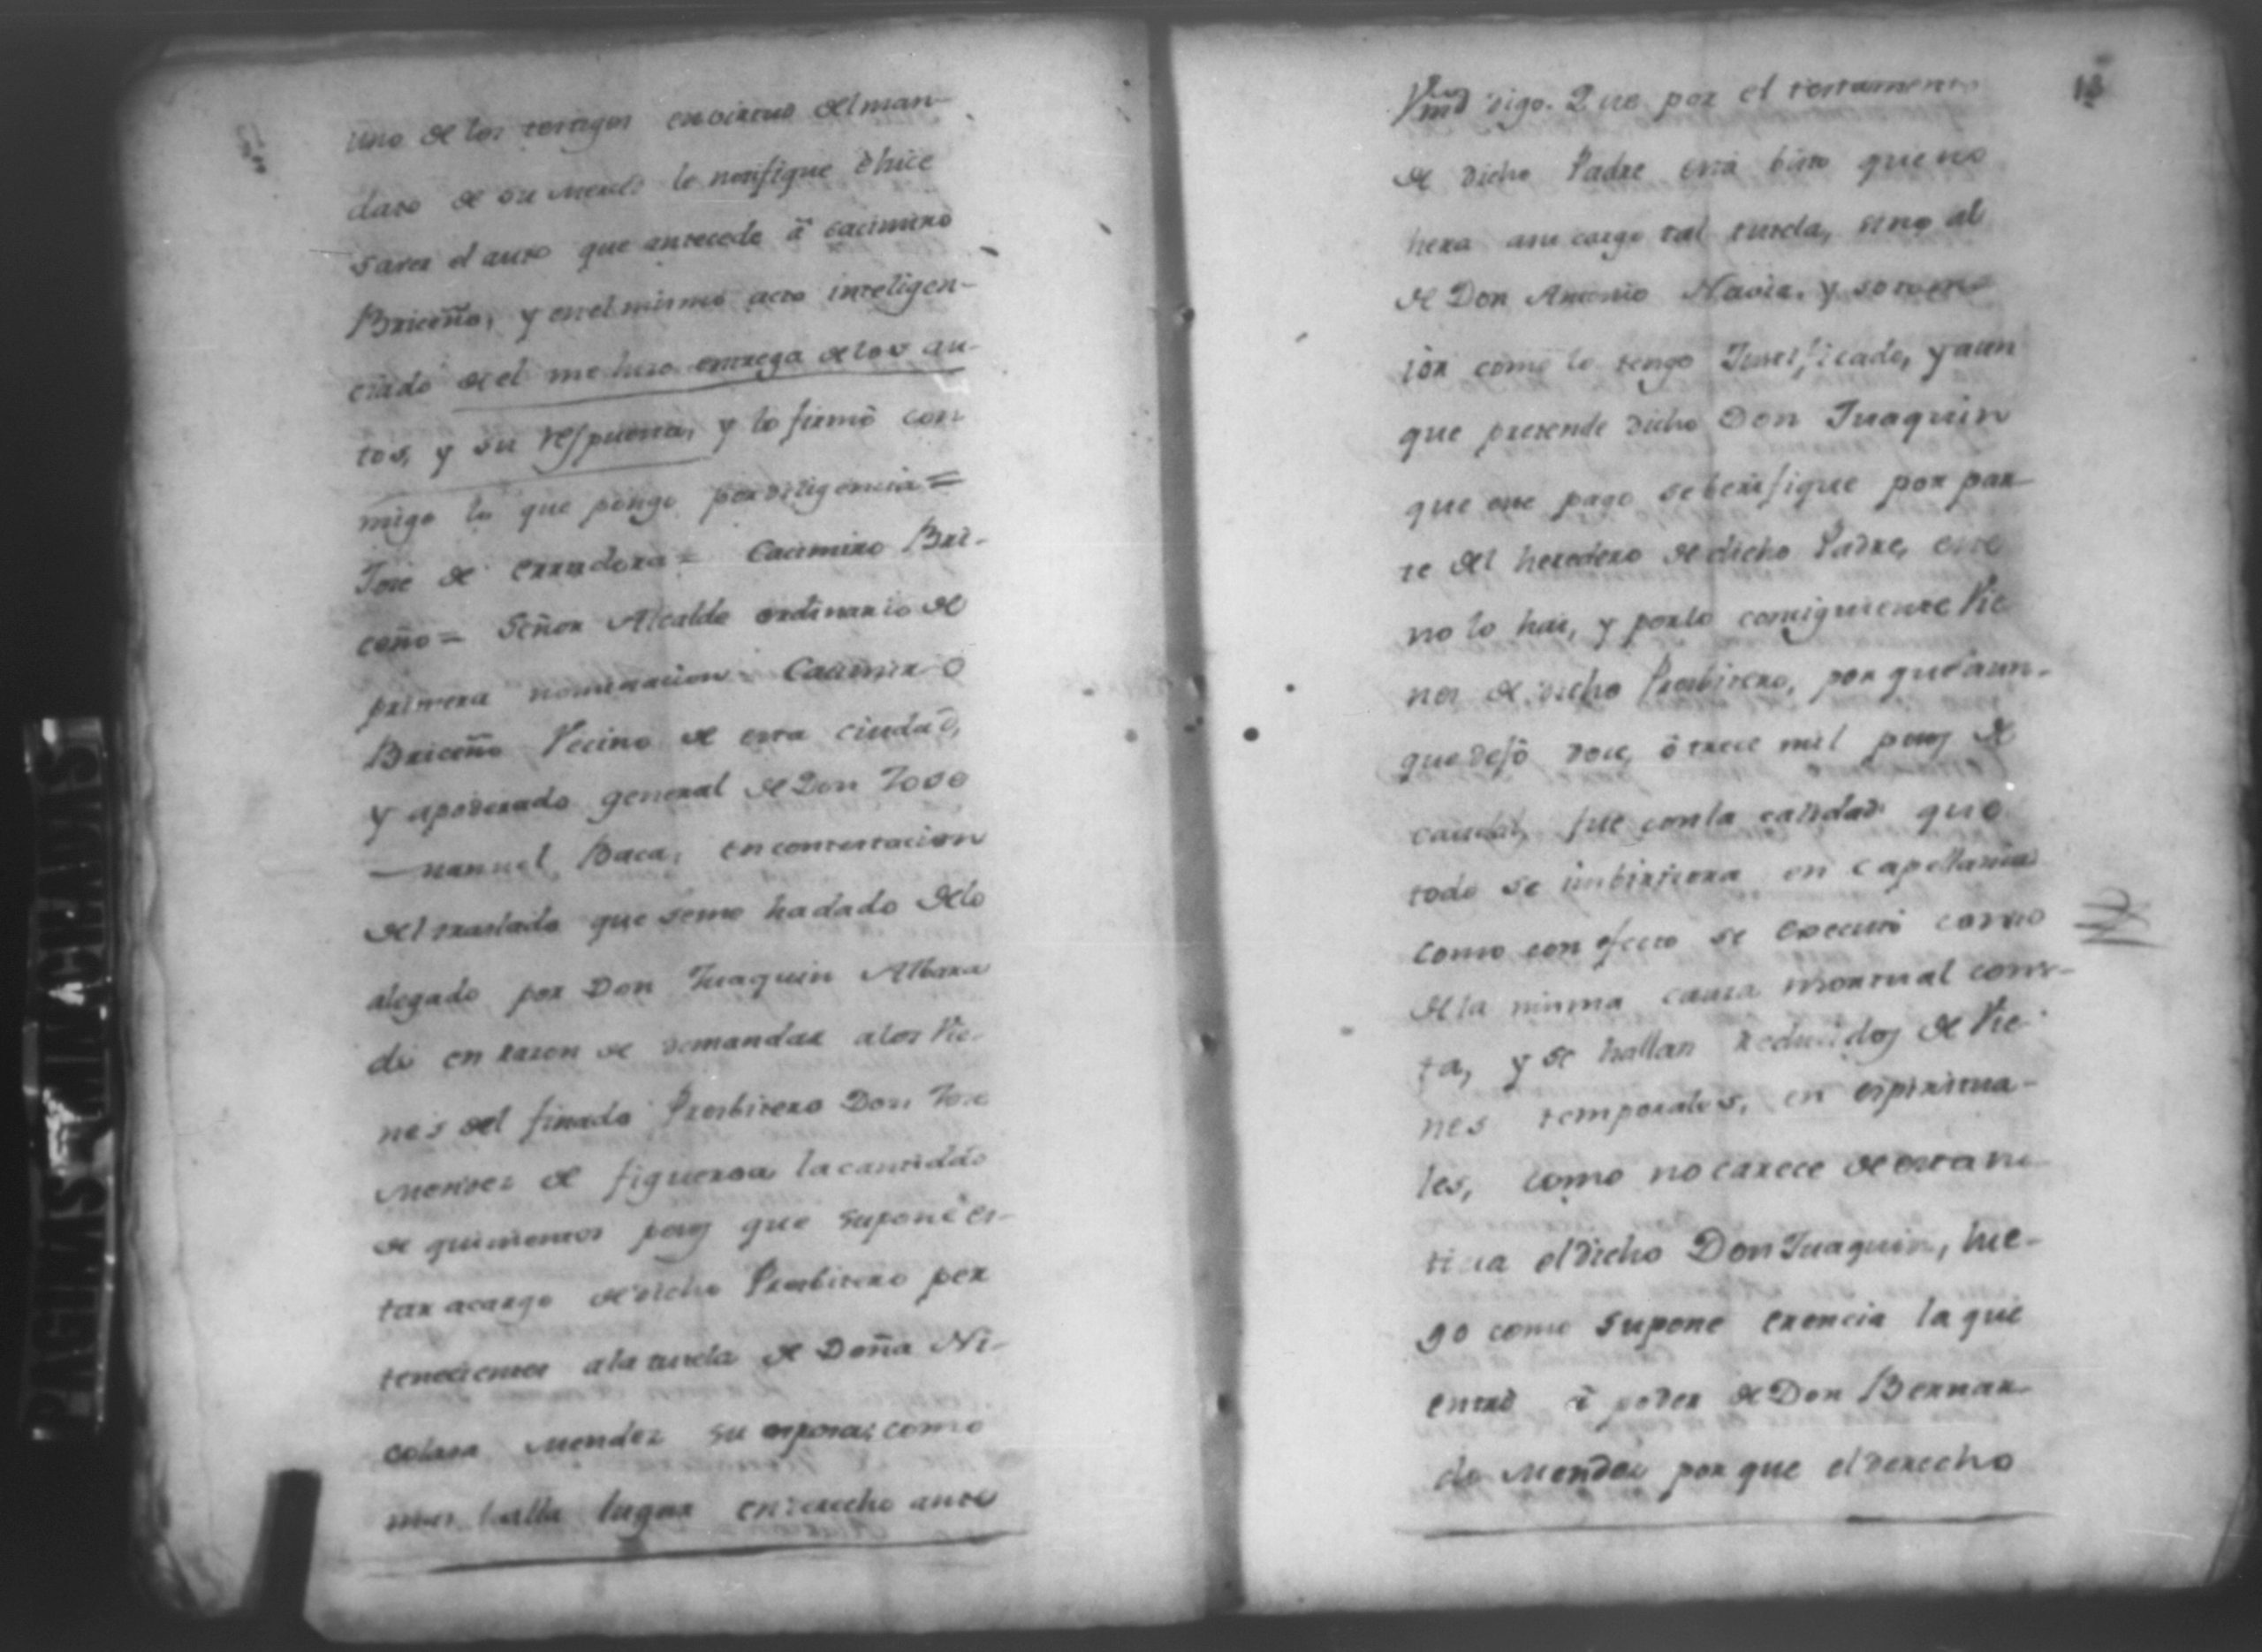 uno de los testigos envirtud del man-
dato de su merced le notifique è hice
saver el auto que antecede â Cacimiro
Briceño, y en el mismo acto inteligen-
ciado de el me hizo entrega de los au-
tos, y su respuesta, y lo firmò con
migo lo que pongo por diligencia =
Jose de Cerradora = Cacimiro Bri-
ceño = Señor Alcalde ordinario de
primera nominacion = Cacimiro
Briceño Vecino de esta ciudad,
y apoderado general de Don Jose
Manuel Baca, en contestacion
del traslado que seme hadado delo
alegado por Don Juaquin Albara
do en razon de demandar alos Vie-
nes del finado Presbitero Don Jose
Mendez de figueroa la cantidad
de quinientos pesos que supone es-
tar acargo de dicho Presbitero per
tenecientes ala tutela de Doña Ni-
colasa Mendez su esposa; como
mas halla lugar enderecho ante
12
Vmd digo. Que por el testamento
de dicho Padre està visto que no
hera asu cargo tal tutela, sino al
de Don Antonio Navia, y
como lo tengo Justificado, y aun
que pretende dicho Don Juaquin
que este pago seberifique por par-
te del heredero de dicho Padre, este
no lo hai, y porlo consiguiente Vie
nes de dicho Presbitero, por que aun-
que dejò doce, ò trece mil pesos de
caudal, fue conla calidad que
todo se imbirtiera en Capellanias
como con efecto se executò como
dela misma causa mortual cons-
ta, y se hallan reducidos de Vie-
nes temporales, en espiritua-
les, como no carece de esta no-
ticia el dicho Don Juaquin, lue-
go como supone erencia la que
entrò à poder de Don Bernar-
do Mendez por que el derecho
PAGINAS DETERIORADAS